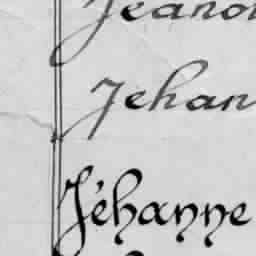 Jeanon
Jehan
Jéhanne